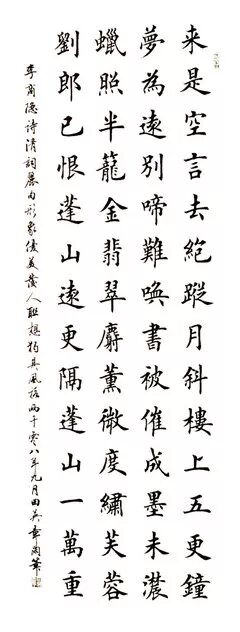 来是空言去絶蹤月斜樓上五更鐘
夢為遠別啼難喚書被催成墨未濃
蠟照半籠金翡翠麝薰微度繡芙蓉
劉郎已恨蓬山遠更隔蓬山一萬重
李商隐诗清詞麗句形象優美發人聯想独具風格两千零八年九月田英章